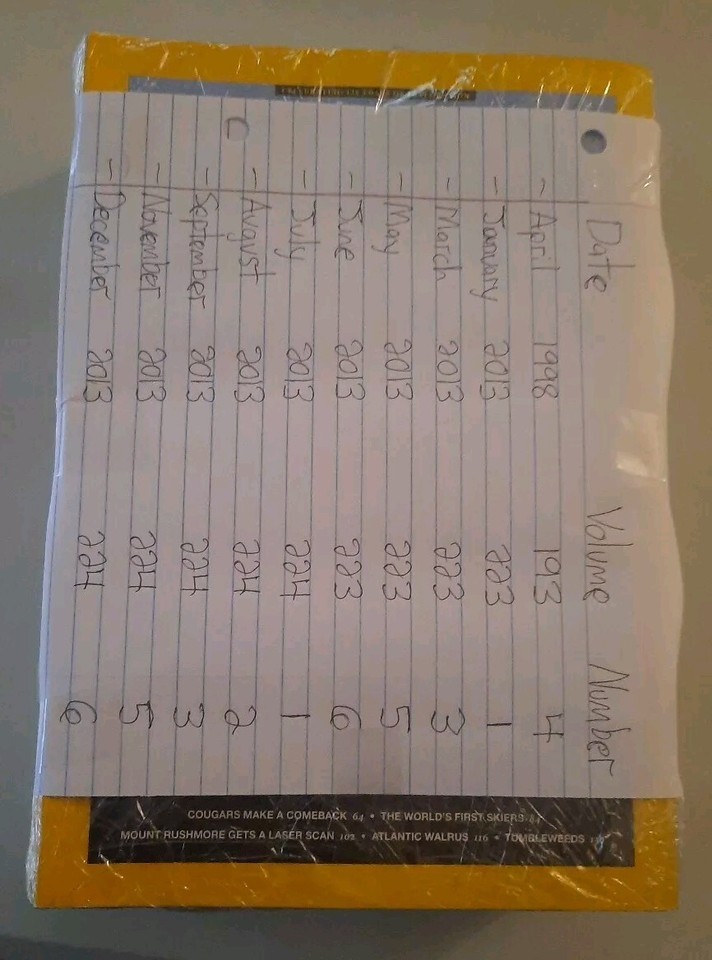 Date Volume Number
- April 1998 193 4
- January 2013 223 1
- March 2013 223 3
- May 2013 223 5
- June 2013 223 6
- July 2013 224 1
- August 2013 224 2
- September 2013 224 3
- November 2013 224 5
- December 2013 224 6
COUGARS MAKE A COMEBACK 64 • THE WORLD'S FIRST SKIERS 84
MOUNT RUSHMORE GETS A LASER SCAN 102 • ATLANTIC WALRUS 116 • TUMBLEWEEDS